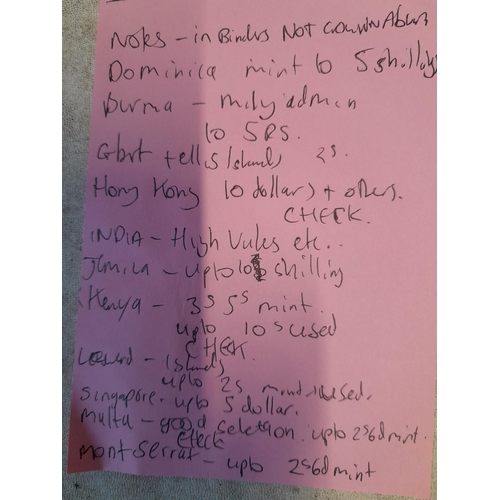 Notes - in Binders Not Crown Albums
Dominica mint to 5 shillings
Burma - mily admin
to 5 RS.
Gbrt + ellis Islands 2s.
Hong Kong 10 dollars + others.
CHECK.
INDIA - High Vules etc..
- upto 10 shilling
Kenya - 3s 5s mint.
upto 10s used
CHECK.
Leeward - Islands
upto 2s mint used.
Singapore. upto 5 dollar.
Malta - good selection. upto 2s6d mint.
check
Montserrat - upto 2s6d mint